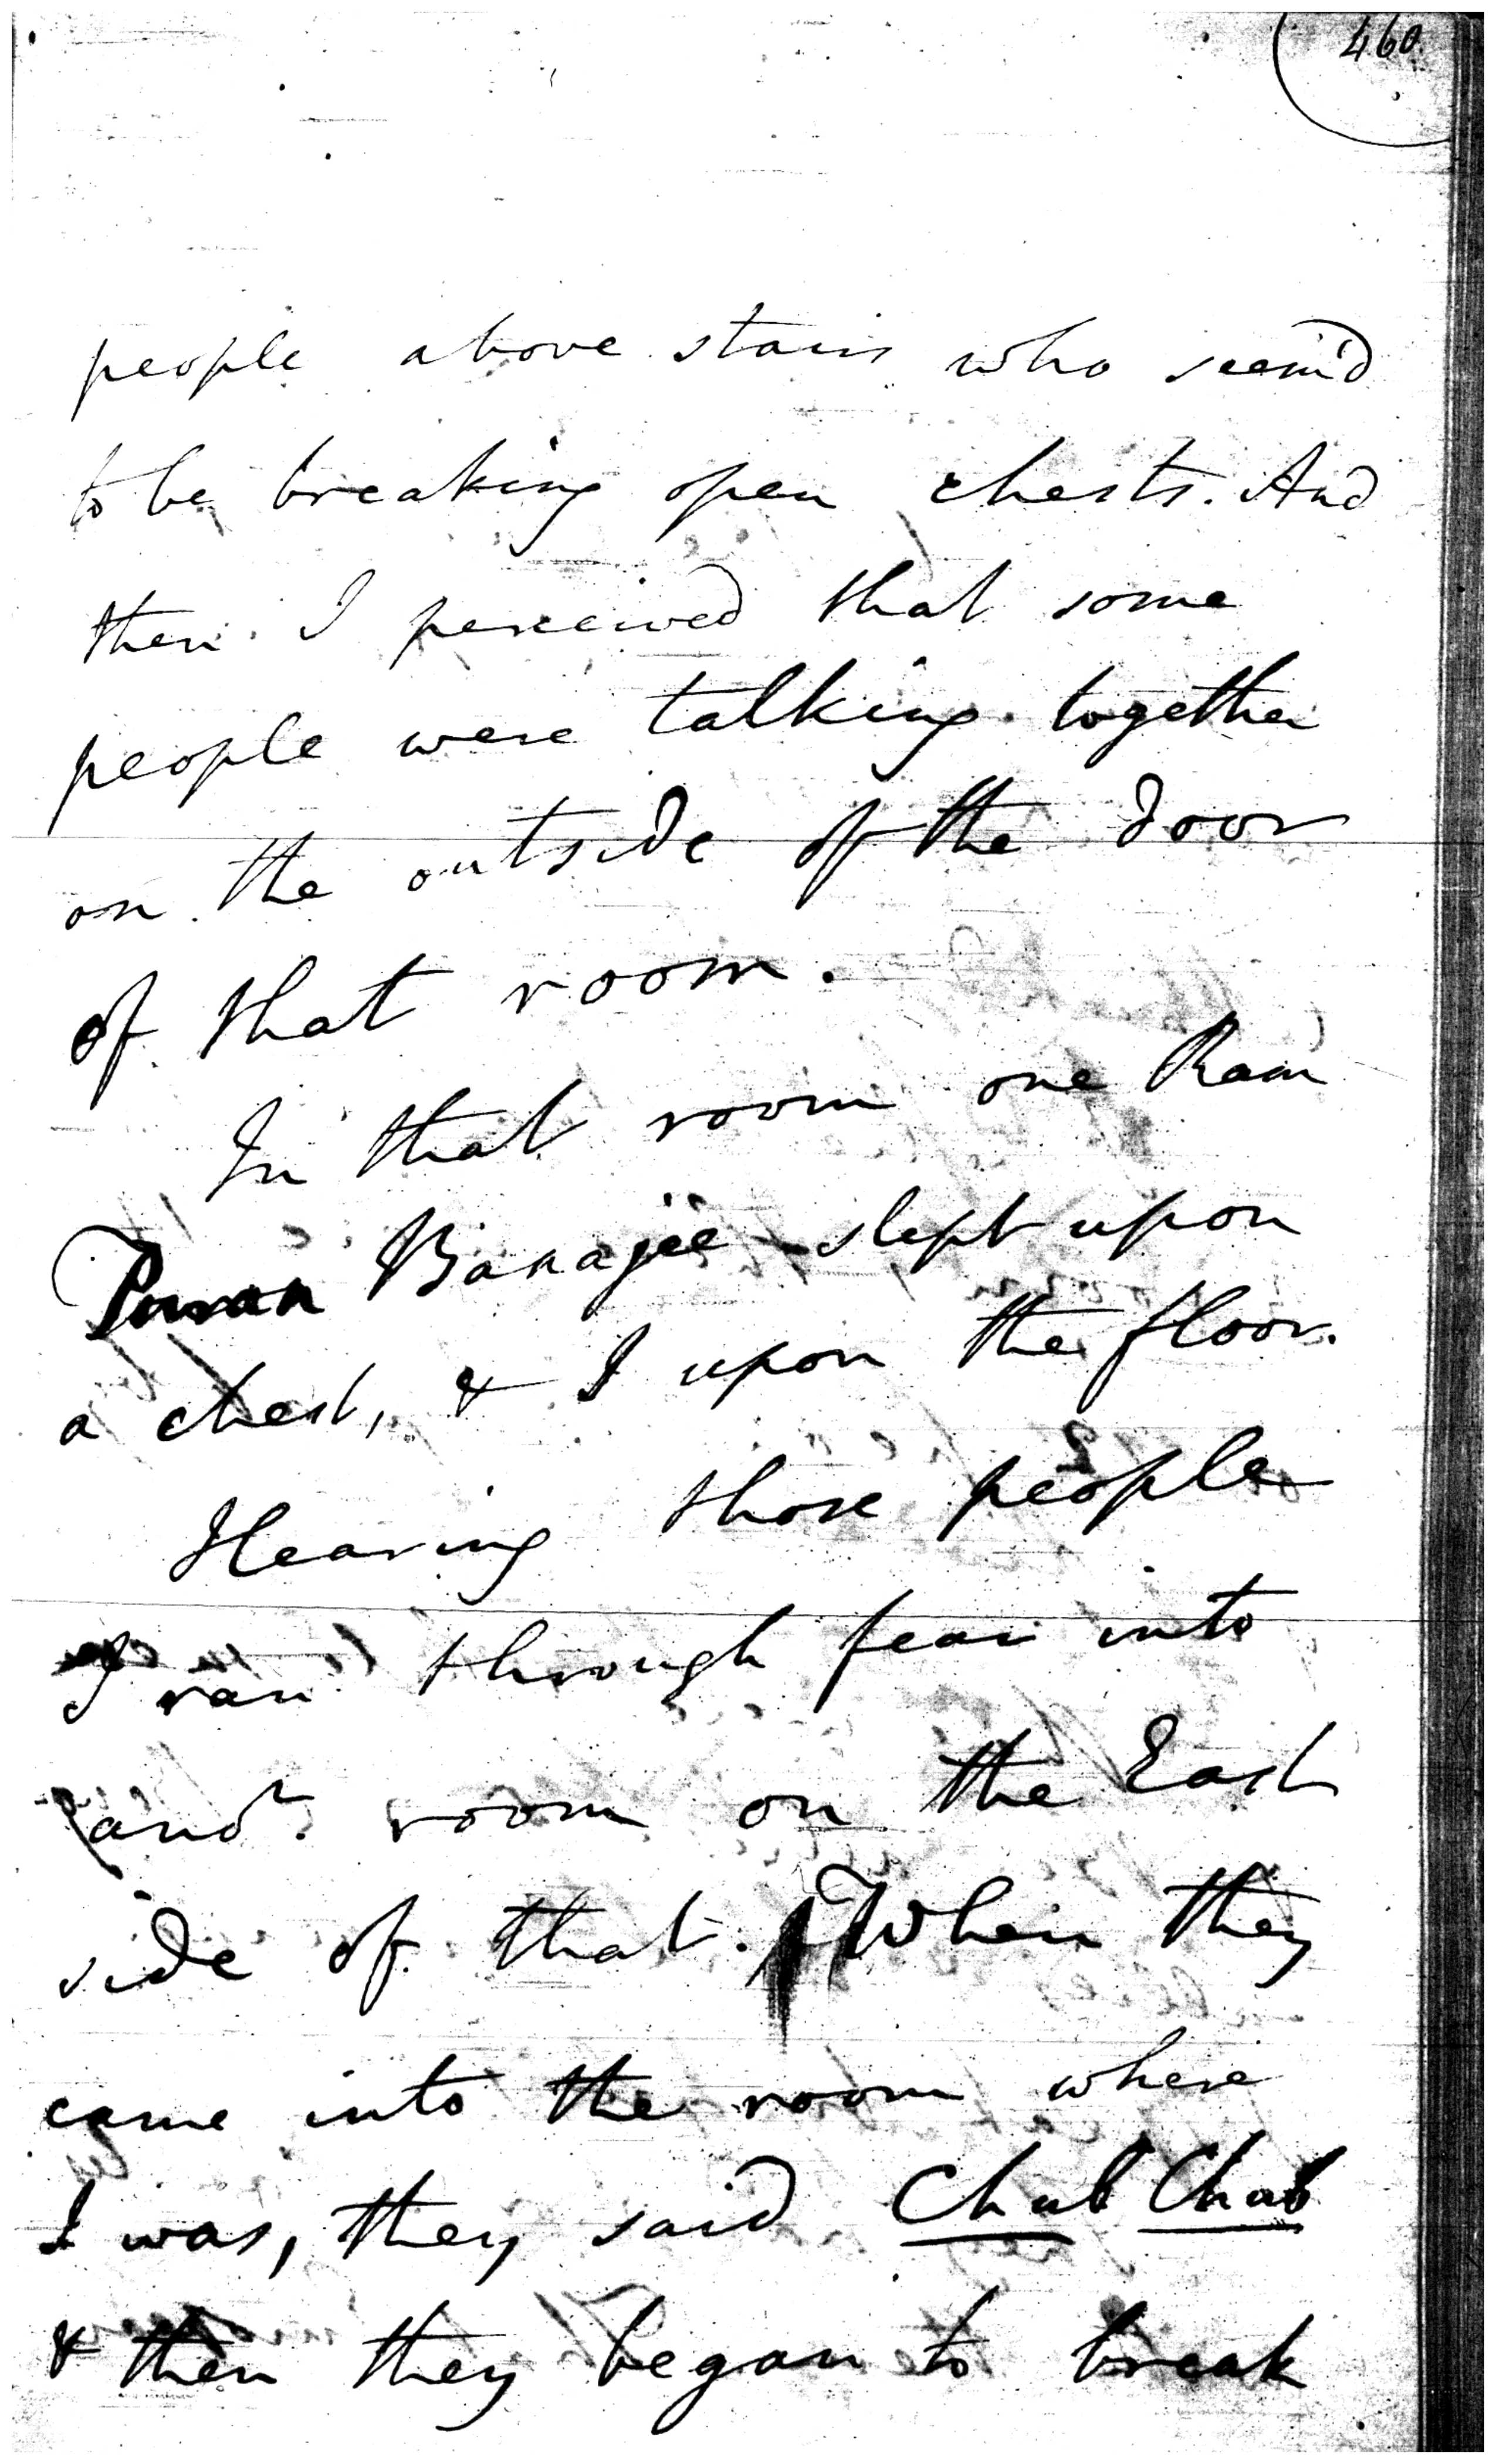 460.
people above stairs who seem'd
to be breaking open chests. And
then I perceived that some
people were talking together
on the outside of the door
of that room.
In that room one Ram
Banajee slept upon
a chest, & I upon the floor.
Hearing those people
I ran through fear into
anor. room on the East
side of that. When they
came into the room where
I was, they said Chub Chab
& then they began to break